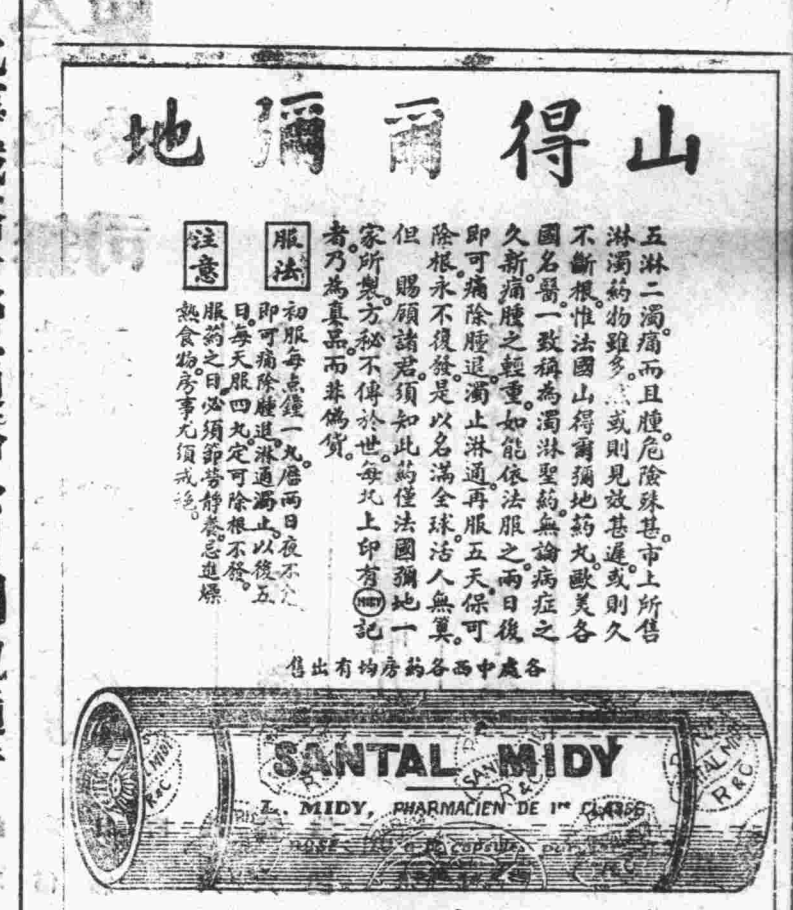 山得爾彌地
五淋二濁。痛而且腫。危險殊甚。市上所售
淋濁葯物雖多。然或則見效甚遲。或則久
不斷根。惟法國山得爾彌地葯丸。歐美各
國名醫。一致稱為濁淋聖葯。無論病症之
久新。痛腫之輕重。如能依法服之。兩日後
即可痛除腫退。濁止淋通。再服五天。保可
除根。永不復發。是以名滿全球。活人無算。
但 賜顧諸君。須知此葯僅法國彌地一
家所製。方秘不傳於世。每丸上印有MIDY記
者。乃為真品。而非偽貨。
服法
初服每点鐘一丸。歷兩日夜不
即可痛除腫退。淋通濁止。以後五
日。每天服四丸。定可除根不發。
注意
服葯之日。必須節勞靜養。忌進燥
熱食物。房事尤須戒絕。
各處中西各葯房均有出售
SANTAL MIDY
L. MIDY, PHARMACIEN DE 1re CLASSE
capsules
SANTAL MIDY
R & C